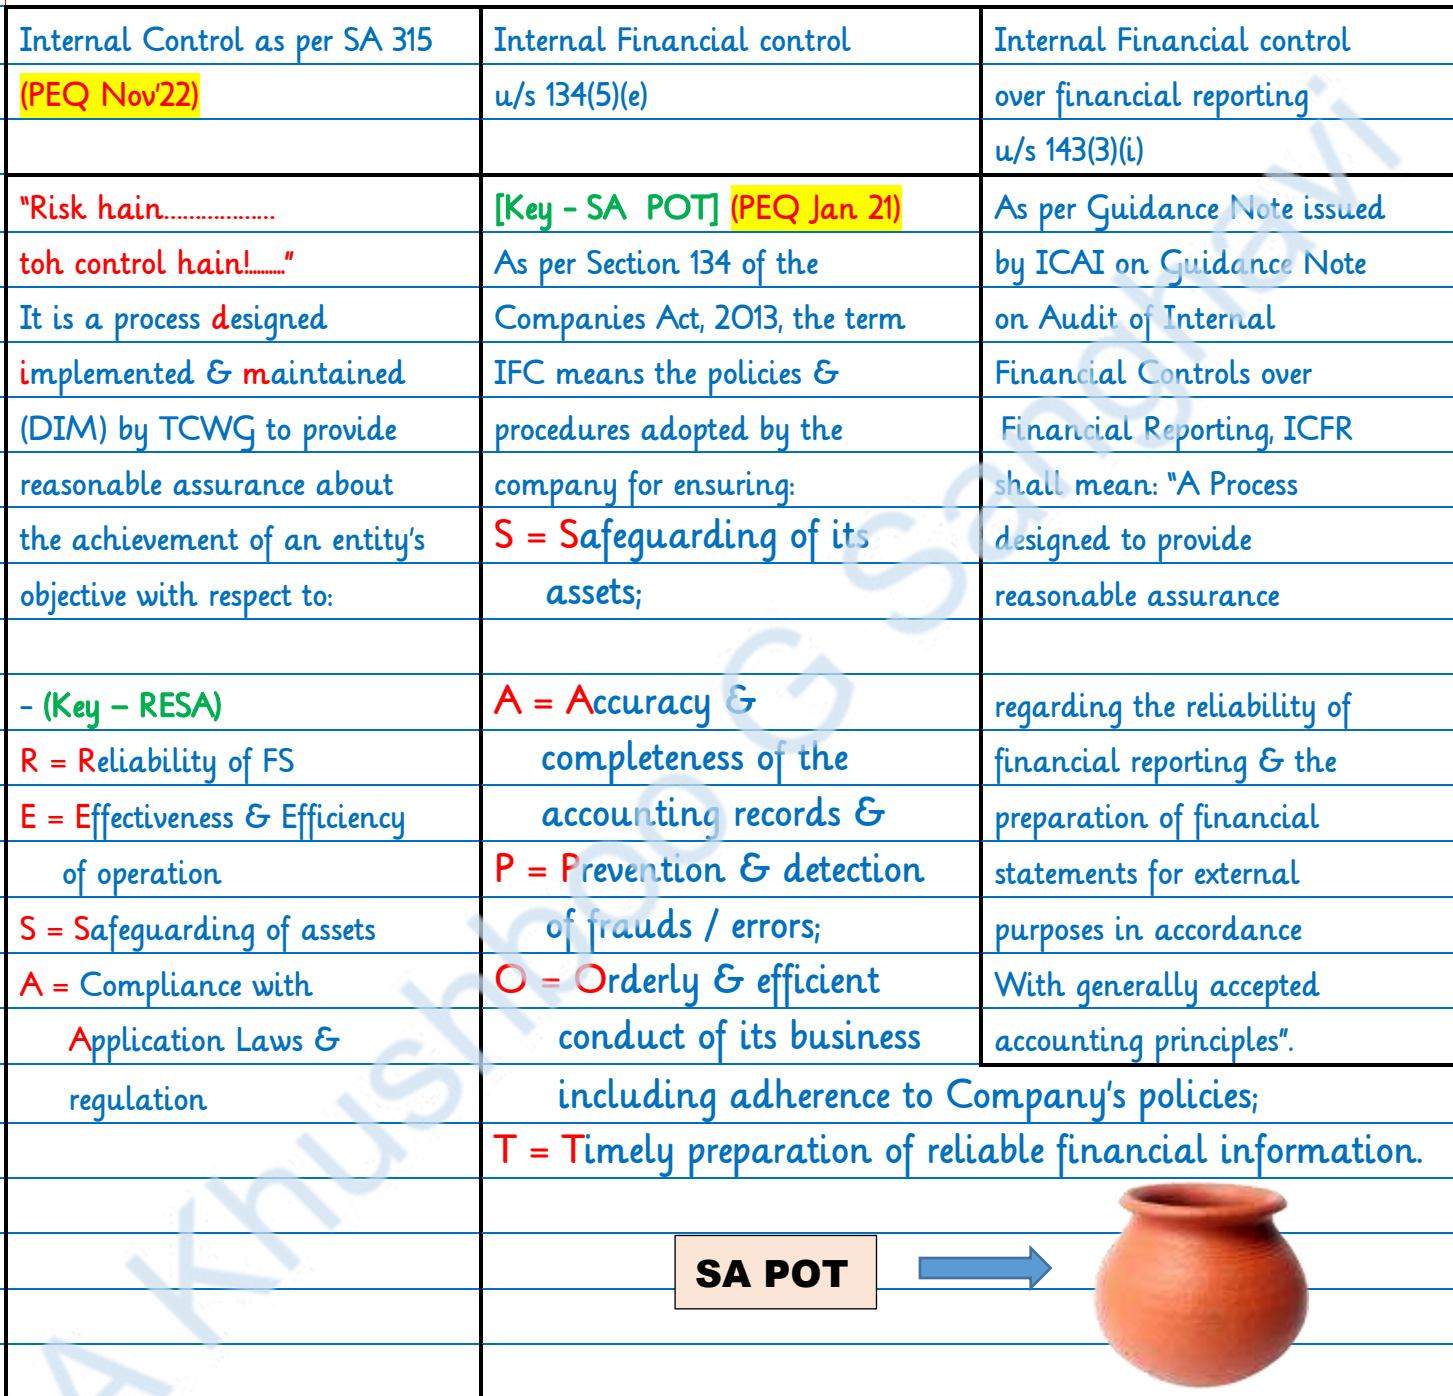 Internal Control as per SA 315
(PEQ Nov'22)
Internal Financial control
u/s 134(5)(e)
Internal Financial control
over financial reporting
u/s 143(3)(i)
"Risk hain………………
toh control hain!………"
It is a process designed
implemented & maintained
(DIM) by TCWG to provide
reasonable assurance about
the achievement of an entity's
objective with respect to:
- (Key – RESA)
R = Reliability of FS
E = Effectiveness & Efficiency
of operation
S = Safeguarding of assets
A = Compliance with
Application Laws &
regulation
[Key - SA POT] (PEQ Jan 21)
As per Section 134 of the
Companies Act, 2013, the term
IFC means the policies &
procedures adopted by the
company for ensuring:
S = Safeguarding of its
assets;
A = Accuracy &
completeness of the
accounting records &
P = Prevention & detection
of frauds / errors;
O = Orderly & efficient
conduct of its business
including adherence to Company's policies;
T = Timely preparation of reliable financial information.
As per Guidance Note issued
by ICAI on Guidance Note
on Audit of Internal
Financial Controls over
Financial Reporting, ICFR
shall mean: "A Process
designed to provide
reasonable assurance
regarding the reliability of
financial reporting & the
preparation of financial
statements for external
purposes in accordance
With generally accepted
accounting principles".
SA POT
A Khushboo G Sanghavi